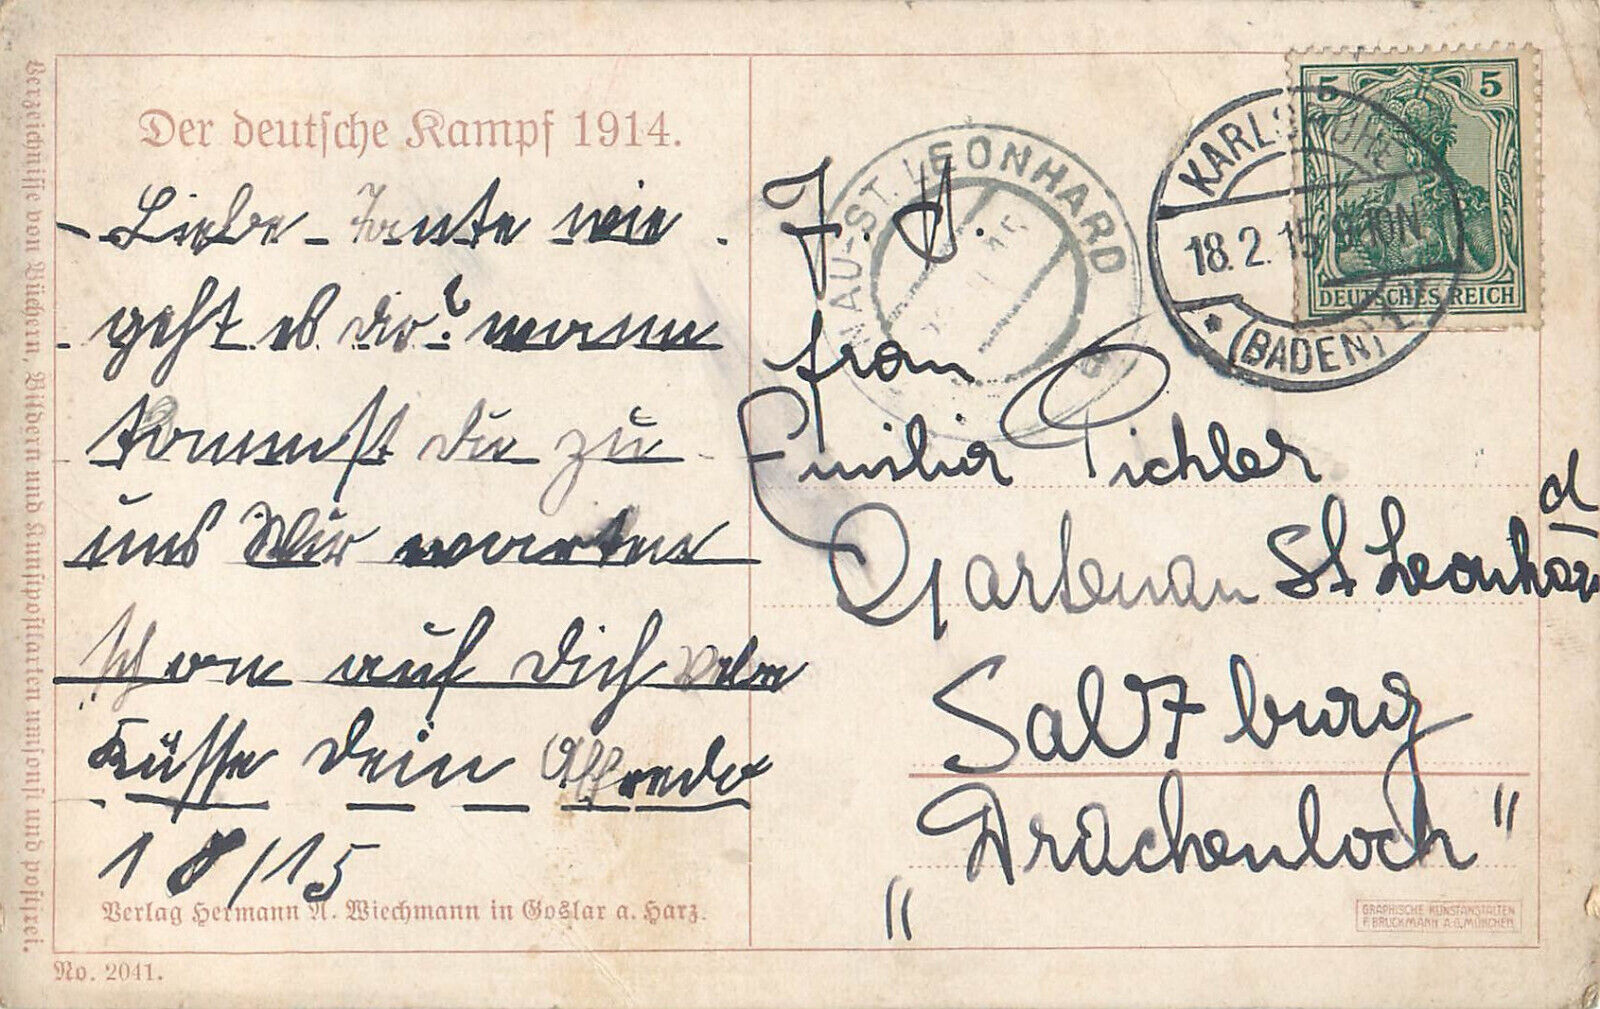 Der deutsche Kampf 1914.
Liebe Tante wie
geht es dir? wann
kommst du zu
uns Wir warten
schon auf Dich viele
Küsse dein Alfreda
18/15
Verlag Hermann A. Wiechmann in Goslar a. Harz.
No. 2041.
Verzeichnisse von Büchern, Bildern und Kunstpostkarten umsonst und postfrei.
GNAU-ST. LEONHARD
5 5
DEUTSCHES REICH
KARLSRUHE
18.2.15.9-10N
* (BADEN) 1
frau
Emilia Pichler
Gartenau St Leonhard
Salzburg
"Drachenloch"
GRAPHISCHE KUNSTANSTALTEN
F. BRUCKMANN A.G. MÜNCHEN